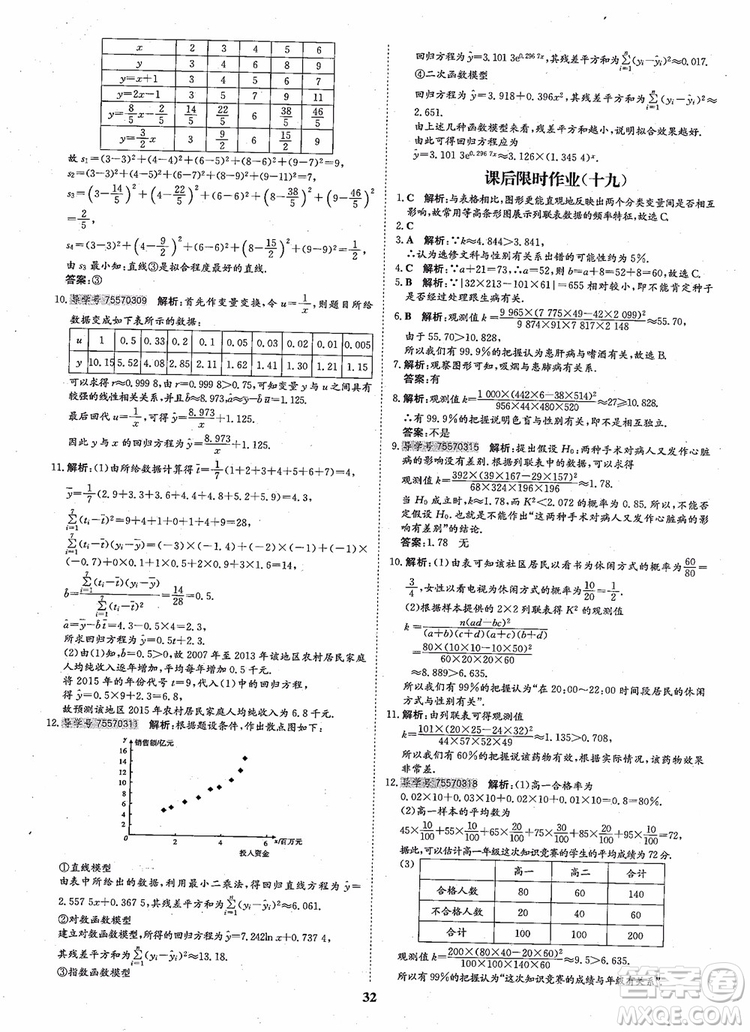 x 2 3 4 5 6
y 3 4 6 8 9
y=x+1 3 4 5 6 7
y=2x-1 3 5 7 9 11
y=8/5x-2/5 14/5 22/5 6 38/5 46/5
y=3/2x 3 9/2 6 15/2 9
故 s₁=(3-3)²+(4-4)²+(6-5)²+(8-6)²+(9-7)²=9.
s₂=(3-3)²+(4-5)²+(6-7)²+(8-9)²+(9-11)²=7.
s₃=(3-14/5)²+(4-22/5)²+(6-6)²+(8-38/5)²+(9-46/5)²=
2/5
s₄=(3-3)²+(4-9/2)²+(6-6)²+(8-15/2)²+(9-9)²=1/2.
由 s₃ 最小知:直线③是拟合程度最好的直线.
答案:③
10. 导学号 75570309 解析:首先作变量变换,令 u=1/x,则题目所给
数据变成如下表所示的数据:
u 1 0.5 0.33 0.2 0.1 0.02 0.01 0.005
y 10.15 5.52 4.08 2.85 2.11 1.62 1.41 1.125
可以求得 r=0.999 8,由 r=0.999 8>0.75,可以认为 y 与 u 具有
较强的线性相关关系,并计算得 b̂≈8.973,â≈1.125.
最后回代 u=1/x,可得 ŷ=8.973/x+1.125.
因此 y 与 x 的回归方程为 ŷ=8.973/x+1.125.
11. 解析:(1)由所给数据计算得 t̄=1/7(1+2+3+4+5+6+7)=4,
ȳ=1/7(2.9+3.3+3.6+4.4+4.8+5.2+5.9)=4.3,
7∑i=1(tᵢ-t̄)²=9+4+1+0+1+4+9=28,
7∑i=1(tᵢ-t̄)(yᵢ-ȳ)=(-3)×(-1.4)+(-2)×(-1)+(-1)×
(-0.7)+0×0.1+1×0.5+2×0.9+3×1.6=14,
b̂=7∑i=1(tᵢ-t̄)(yᵢ-ȳ)/7∑i=1(tᵢ-t̄)²=14/28=0.5,
â=ȳ-b̂t̄=4.3-0.5×4=2.3,
故所求回归方程为 ŷ=0.5t+2.3.
(2)由(1)知,b̂=0.5>0,故 2007 年至 2013 年该地区农村居民家庭
人均纯收入逐年增加,平均每年增加 0.5 千元.
将 2015 年的年份代号 t=9,代入(1)中的回归方程,
得 ŷ=0.5×9+2.3=6.8,
故预测该地区 2015 年农村居民家庭人均纯收入为 6.8 千元.
12. 导学号 75570311 解析:根据题设条件,作出散点图如下:
y 销售额/亿元
16
14
12
10
8
6
4
2
0 2 4 6 x/百万元
投入资金
①直线模型
由表中所给出的数据,利用最小二乘法,可求得回归方程为 ŷ=
2.557 5x+0.367 5,其残差平方和为 n∑i=1(yᵢ-ŷᵢ)²≈5.00.
②对数函数模型
建立对数函数模型,可求得回归方程为 ŷ=7.242ln x+0.737 4
其残差平方和为 n∑i=1(yᵢ-ŷᵢ)²≈13.18.
③指数函数模型
回归方程为 ŷ=3.101 3e^0.296 7x,其残差平方和为 n∑i=1(yᵢ-ŷᵢ)²≈
④二次函数模型
回归方程为 ŷ=3.918+0.396x²,其残差平方和为 n∑i=1(yᵢ-ŷᵢ)²≈
2.651.
由上述几种函数模型来看,残差平方和越小,说明效果越好.
因此可得回归方程为
ŷ=3.101 3e^0.296 7x≈3.126×(1.345 4)ˣ.
课后限时作业(十九)
1. C 解析:与表格相比,图形更能直观地反映出两个分类变量间是否相
互影响,故常用等高条形图展示列联表数据的频率特征.
2. C
3. A 解析:∵k≈4.844>3.841,
∴认为选修文科与性别有关系出错的可能性约为 5%.
4. C 解析:∵a+21=73,∴a=52,则 b=a+2=52+2=54.
5. B 解析:∵|32×213-101×61|=655 最大,∴最能判断种子是
否经过处理跟生病有关.
6. B 解析:k=9 965×(7 775×49-42×2 099)²/9 874×91×7 817×2 148≈56.6,
由于 56.6>10.828,
所以我们有 99.9%的把握认为患肝病与嗜酒有关.
7. 解析:观察图形可知,吸烟与患肺病有关.
答案:有
8. 解析:观测值 k=1 000×(442×6-38×514)²/956×44×480×520≈27>10.828.
∴有 99.9%的把握说明色盲与性别有关,并不是相互独立.
答案:不是
9. 导学号 75570315 解析:提出假设 H₀:两种手术对病人又发作心脏
病的影响没有差别.根据列联表中的数据,可以求得
观测值 k=392×(39×167-29×157)²/68×324×196×196≈1.78.
当 H₀ 成立时,k≈1.78,而 K²<2.072 的概率为 0.85,所以不能否
定假设 H₀,也就是不能作出“这两种手术对病人又发作心脏病的
影响有差别”的结论.
答案:1.78 无
10. 解析:(1)由表可知该社区居民以看书为休闲方式的概率为 60/80=
3/4,女性以看电视为休闲方式的概率为 10/20=1/2.
(2)根据样本提供的 2×2 列联表得 K² 的观测值
k=n(ad-bc)²/(a+b)(c+d)(a+c)(b+d)
=80×(10×10-10×50)²/60×20×20×60
≈8.889>6.635.
所以我们有 99%的把握认为“在 20:00~22:00 时间段居民的休闲
方式与性别有关系”.
11. 解析:由列联表可得观测值
k=101×(20×25-24×32)²/52×49×44×57≈1.135>0.708,
由题意可知,该医院上述诊断,该药物有效.根据实际情况,该药
物有效,非常正确.
12. 导学号 75570318 解析:(1)高一合格率为
0.02×10+0.03×10+0.02×10+0.01×10=0.8=80%.
(2)高一样本的平均数为
45×10/100+55×10/100+65×20/100+75×30/100+85×20/100+95×10/100=72,
据此,可以估计高一年级这次知识竞赛的学生的平均成绩为 72 分.
(3)
高一 高二 合计
合格人数 80 60 140
不合格人数 20 40 60
合计 100 100 200
观测值 k=200×(80×40-20×60)²/100×100×140×60≈9.5>6.635.
所以有 99%的把握认为“这次知识竞赛的成绩与年级有关系”.
32
答案圈